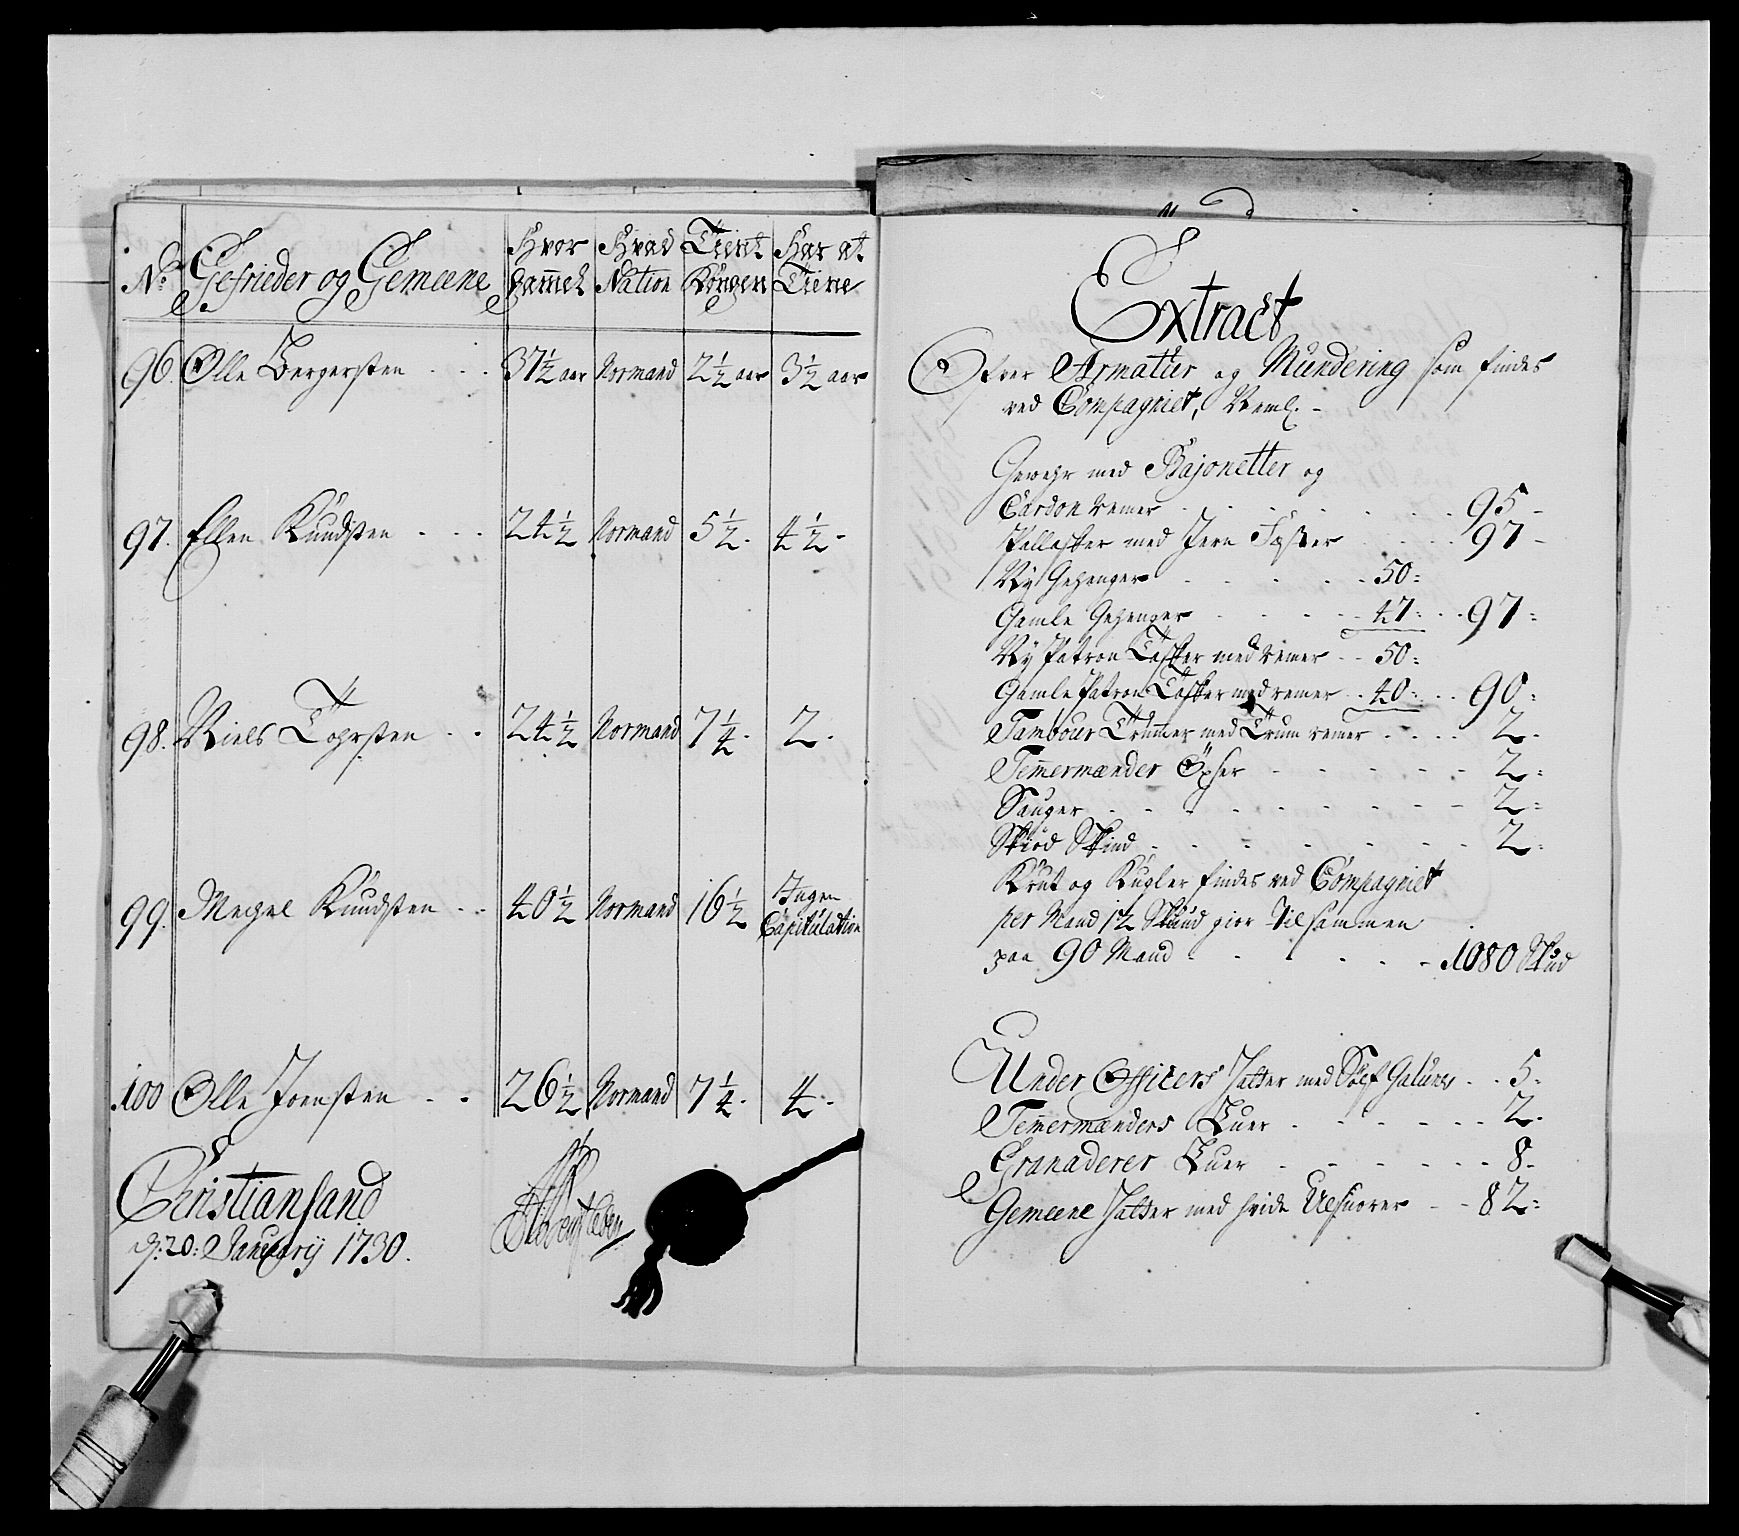 No Gefrieder og Gemeene Hvor gammel Hvad Nation Tient Kongen Har at Tiene
96. Olle Bergersten 37½ aar Normand 2½ aar 3½ aar
97. Ellen Knudsten 24½ Normand 5½ 4½
98. Niels Torsten 24½ Normand 7¼ 2
99. Megel Knudsten 40½ Normand 16½ Ingen Capitulation
100 Olle Joensten 26½ Normand 7¼ 4
Christiansand
d: 20: Januarij 1730.
Extract
Ofver Armatur og Mundering som findes
ved Compagniet, Neml.
Gevehr med Bajonetter og
Cardon remer 95
Pallasker med Jern Fæster 97
Ny Gehenger 50
Gamle Gehenger 47 97
Ny Patron Tasker med remer 50
Gamle Patron Tasker med remer 40 90
Tambour Trummer med Trum remer 2
Temermænder Öxser 2
Sauger 2
Skiöd Skind 2
Krut og Kugler findes ved Compagniet
per Mand 12 Skuud giör tilsammen
paa 90 Mand 1080 Skud
Under Officers Hatter med Sölf Galuner 5
Temermænders Huer 2
Granaderer Huer 8
Gemeene Hatter med hvide Ulsnorer 82